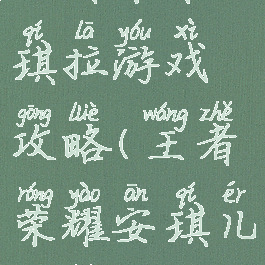 qí lā yóu xì
琪拉游戏
gōng lüè wáng zhě
攻略(王者
róng yào ān qí ér
荣耀安琪儿